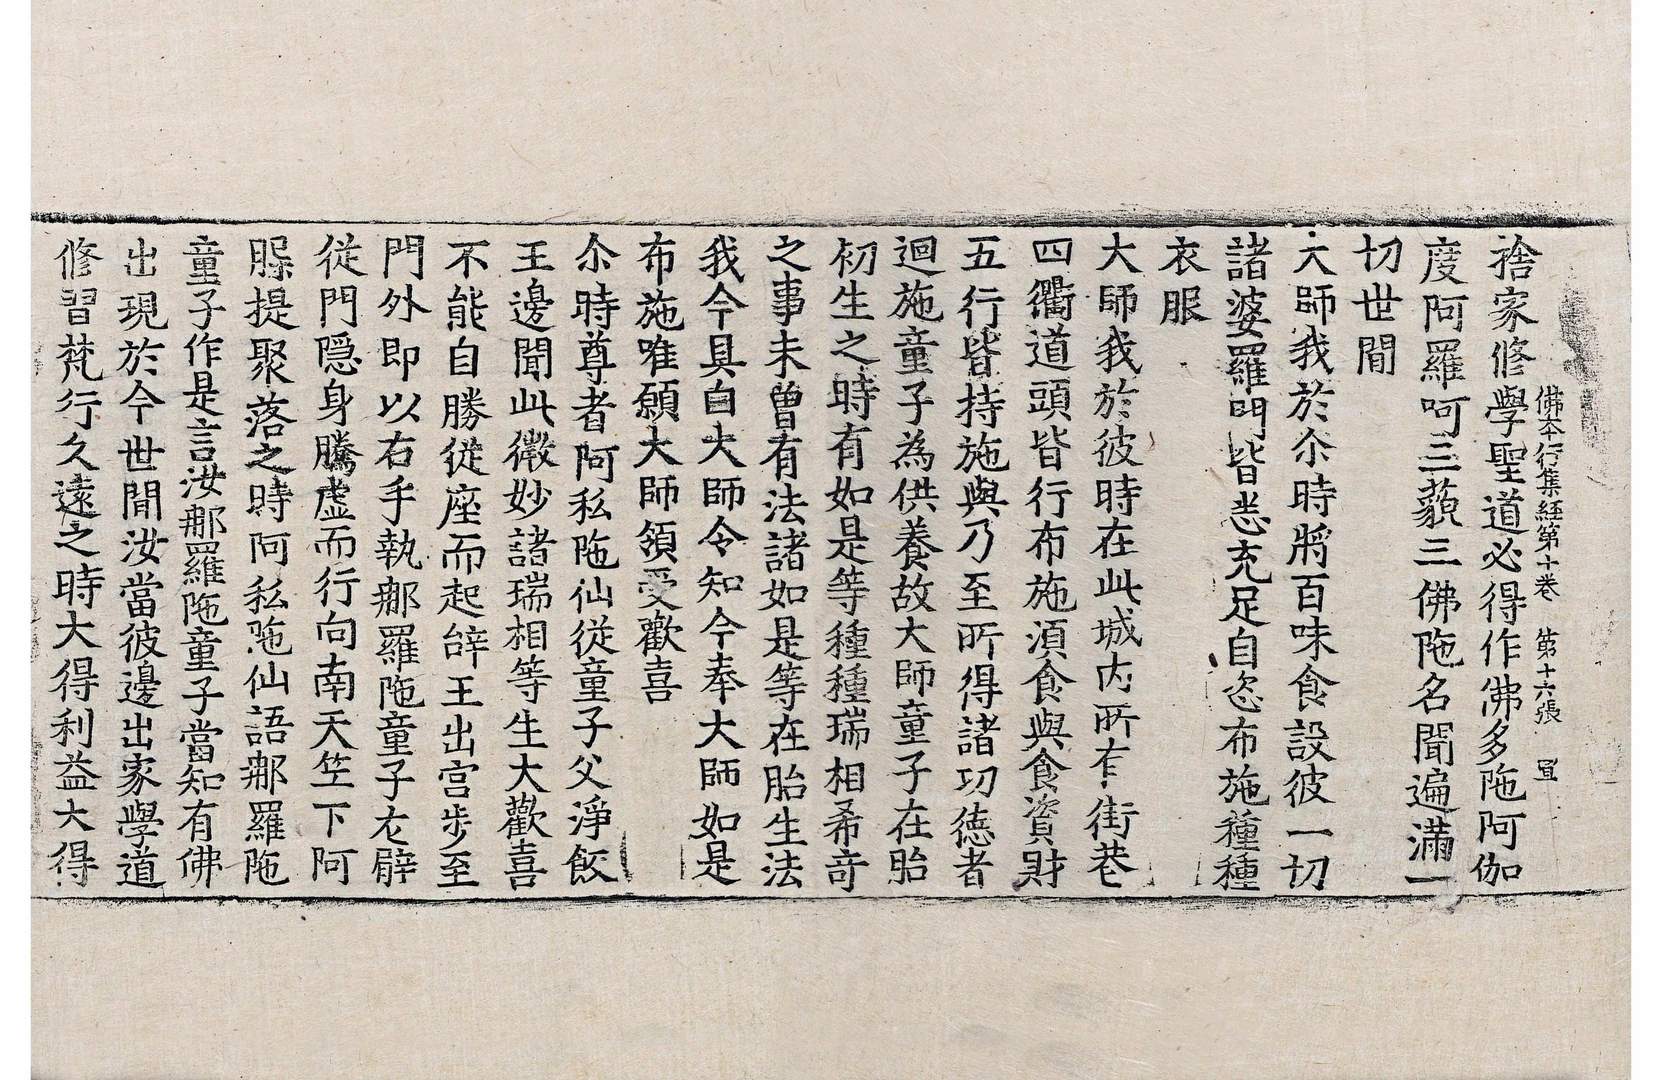 佛本行集經第十卷 第十六張 罝
捨家修學聖道必得作佛多陁阿伽
度阿羅呵三藐三佛陁名聞遍滿一
切世間
大師我於尒時將百味食設彼一切
諸婆羅門皆悉充足自恣布施種種
衣服
大師我於彼時在此城內所有街巷
四衢道頭皆行布施須食與食資財
五行皆持施與乃至所得諸功德者
迴施童子為供養故大師童子在胎
初生之時有如是等種種瑞相希奇
之事未曾有法諸如是等在胎生法
我今具自大師令知今奉大師如是
布施唯願大師領受歡喜
尒時尊者阿私陁仙從童子父淨飯
王邊聞此微妙諸瑞相等生大歡喜
不能自勝從座而起辝王出宮步至
門外即以右手執那羅陁童子左臂
從門隱身騰虛而行向南天竺下阿
槃提聚落之時阿私陁仙語那羅陁
童子作是言汝那羅陁童子當知有佛
出現於今世間汝當彼邊出家學道
修習梵行久遠之時大得利益大得